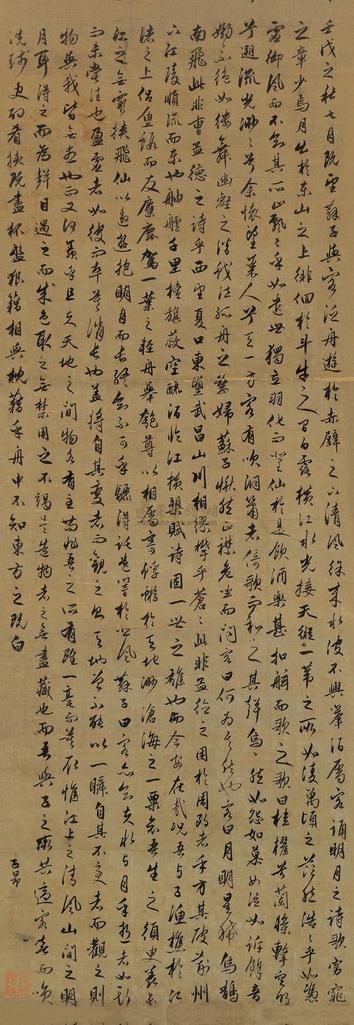 壬戌之秋七月既望蘇子與客泛舟遊於赤壁之下清風徐來水波不興舉酒屬客誦明月之詩歌窈窕
之章少焉月出於東山之上徘徊於斗牛之間白露橫江水光接天縱一葦之所如凌萬頃之茫然浩浩乎如憑
虛御風而不知其所止飄飄乎如遺世獨立羽化而登仙於是飲酒樂甚扣舷而歌之歌曰桂櫂兮蘭槳擊空明
兮遡流光渺渺兮余懷望美人兮天一方客有吹洞簫者倚歌而和之其聲嗚嗚然如怨如慕如泣如訴餘音
嫋嫋不絕如縷舞幽壑之潛蛟泣孤舟之嫠婦蘇子愀然正襟危坐而問客曰何為其然也客曰月明星稀烏鵲
南飛此非曹孟德之詩乎西望夏口東望武昌山川相繆鬱乎蒼蒼此非孟德之困於周郎者乎方其破荊州
下江陵順流而東也舳艫千里旌旗蔽空釃酒臨江橫槊賦詩固一世之雄也而今安在哉況吾與子漁樵於江
渚之上侶魚蝦而友麋鹿駕一葉之輕舟舉匏尊以相屬寄蜉蝣於天地渺滄海之一粟哀吾生之須臾羨長
江之無窮挾飛仙以遨遊抱明月而長終知不可乎驟得託遺響於悲風蘇子曰客亦知夫水與月乎逝者如斯
而未嘗往也盈虛者如彼而卒莫消長也蓋將自其變者而觀之則天地曾不能以一瞬自其不變者而觀之則
物與我皆無盡也而又何羨乎且夫天地之間物各有主苟非吾之所有雖一毫而莫取惟江上之清風山間之明
月耳得之而為聲目遇之而成色取之無禁用之不竭是造物者之無盡藏也而吾與子之所共適客喜而笑
洗盞更酌肴核既盡杯盤狼籍相與枕藉乎舟中不知東方之既白
子昂